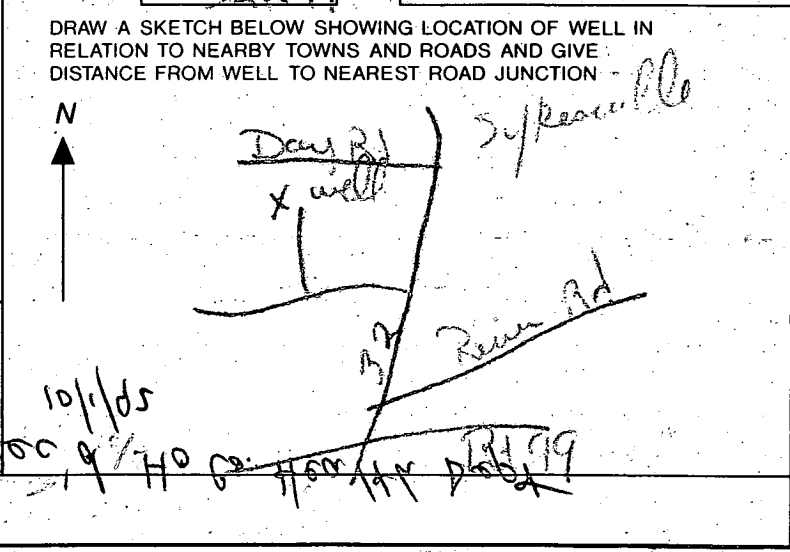 DRAW A SKETCH BELOW SHOWING LOCATION OF WELL IN
RELATION TO NEARBY TOWNS AND ROADS AND GIVE
DISTANCE FROM WELL TO NEAREST ROAD JUNCTION
N
Sykesville
Rd
X well
32
River Rd
10/1/05
Rd 99
HO Co. Health Dept